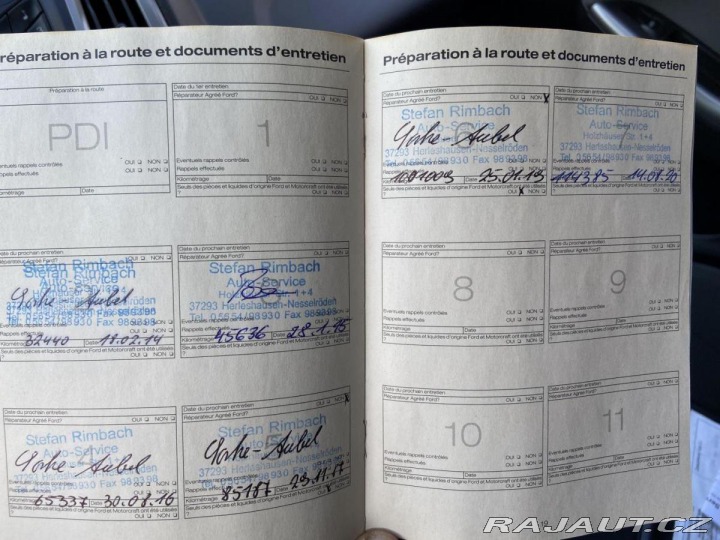 réparation à la route et documents d'entretien
Préparation à la route
PDI
Eventuels rappels contrôlés OUI NON
Rappels effectués OUI NON
Kilométrage Date
Date du 1er entretien
Réparateur Agréé Ford? OUI NON
1
Eventuels rappels contrôlés OUI NON
Rappels effectués OUI NON
Kilométrage Date
Seuls des pièces et liquides d'origine Ford et Motorcraft ont été utilisés
OUI NON
Date du prochain entretien
OUI NON
Stefan Rimbach
Auto-Service
32440 Date 18.02.14
Seuls des pièces et liquides d'origine Ford et Motorcraft ont été utilisés
OUI NON
Date du prochain entretien
Réparateur Agréé Ford? OUI NON
Stefan Rimbach
Auto-Service
37293 Herleshausen-Nesselröden
Tel. 05654/98930 Fax 989398
Kilométrage 45636 Date 28.1.15
Seuls des pièces et liquides d'origine Ford et Motorcraft ont été utilisés
OUI NON
Date du prochain entretien
Réparateur Agréé Ford? OUI NON
Stefan Rimbach
Auto-Service
Kilométrage 65337 Date 30.08.16
OUI NON
Date du prochain entretien
Réparateur Agréé Ford? OUI NON X
Stefan Rimbach
37293 Herleshausen-Nesselröden
Kilométrage 85187 Date 23.11.17
Seuls des pièces et liquides d'origine Ford et Motorcraft ont été utilisés
OUI NON
Préparation à la route et documents d'entretien
Date du prochain entretien
Réparateur Agréé Ford? OUI NON X
Stefan Rimbach
Auto-Service
37293 Herleshausen-Nesselröden
Tel. 05654/98930 Fax 989398
Rappels effectués
25.01.19
Seuls des pièces et liquides d'origine Ford et Motorcraft ont été utilisés
OUI X NON
Date du prochain entretien
Réparateur Agréé Ford? OUI NON
Stefan Rimbach
Auto-Service
37293 Herleshausen-Nesselröden
Tel. 05654/98930 Fax 989398
114385 14.08.20
Seuls des pièces et liquides d'origine Ford et Motorcraft ont été utilisés
OUI NON
Date du prochain entretien
Réparateur Agréé Ford? OUI NON
8
Eventuels rappels contrôlés OUI NON
Rappels effectués OUI NON
Kilométrage Date
Seuls des pièces et liquides d'origine Ford et Motorcraft ont été utilisés
OUI NON
Date du prochain entretien
Réparateur Agréé Ford? OUI NON
9
Eventuels rappels contrôlés OUI NON
Rappels effectués OUI NON
Kilométrage Date
Seuls des pièces et liquides d'origine Ford et Motorcraft ont été utilisés
OUI NON
Date du prochain entretien
Réparateur Agréé Ford? OUI NON
10
Eventuels rappels contrôlés OUI NON
Rappels effectués OUI NON
Kilométrage Date
Seuls des pièces et liquides d'origine Ford et Motorcraft ont été utilisés
OUI NON
Date du prochain entretien
Réparateur Agréé Ford? OUI NON
11
Eventuels rappels contrôlés OUI NON
Rappels effectués OUI NON
Kilométrage Date
Seuls des pièces et liquides d'origine Ford et Motorcraft ont été utilisés
OUI NON
RAJAUT.CZ